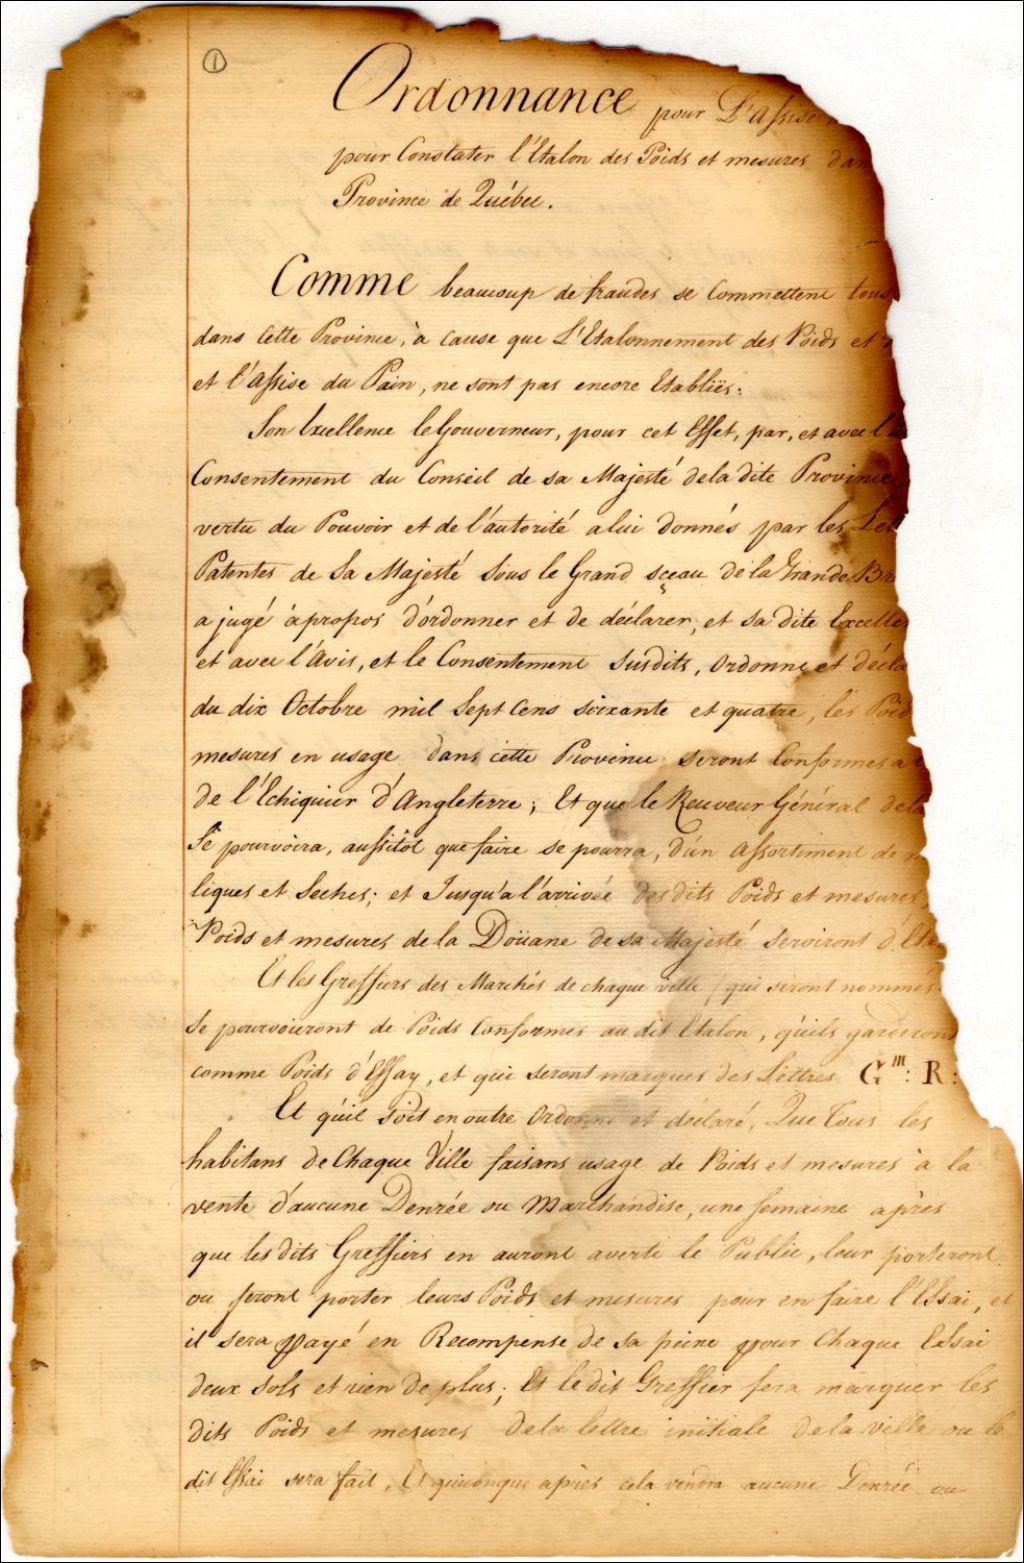 ①
Ordonnance pour L'assise
pour Constater l'Etalon des Poids et mesures dan
Province de Québec.
Comme beaucoup de fraudes se Commettent tous
dans Cette Province, à cause que L'Etalonnement des Poids et
et l'Assise du Pain, ne sont pas encore Etabliës.
Son Excellence le Gouverneur, pour cet Effet, par, et avec l'A
Consentement du Conseil de sa Majesté dela dite Province,
vertu du Pouvoir et de l'autorité alui donnés par les Let
Patentes de Sa Majesté Sous le Grand sçeau de la Grande Br
a jugé àpropos d'ordonner et de déclarer, et sa dite Excelle
et avec l'Avis, et le Consentement Susdits, Ordonne et décla
du dix Octobre mil Sept Cens Soixante et quatre, les Poid
mesures en usage dans cette Province seront Conformes a l
de l'Echiquier d'Angleterre; Et que le Receveur Général dela
Se pourvoira, aussitôt que faire se pourra, d'un Assortiment de m
liques et Seches; et Jusqu'a l'arrivée des dits Poids et mesures,
Poids et mesures de la Doüane de sa Majesté serviront d'Eta
Et les Greffiers des Marchés de chaque ville (qui seront nommés
Se pourvoieront de Poids Conformes au dit Etalon, qu'ils garderons
comme Poids d'Essay, et qui seront marqués des Lettres G^m: R:
Et qu'il soit en outre Ordonné et déclaré, Que Tous les
habitans de Chaque Ville faisans usage de Poids et mesures à la
vente d'aucune Denrée ou Marchandise, une semaine après
que les dits Greffiers en auront averti le Public, leur porteront
ou feront porter leurs Poids et mesures pour en faire l'Essai, et
il sera payé en Recompense de sa peine pour Chaque Essai
deux Sols et rien de plus; Et le dit Greffier fera marquer les
dits Poids et mesures dela lettre initiale de la ville ou le
dit Essai sera fait, Et quiconque après cela vendra aucune Denrée ou